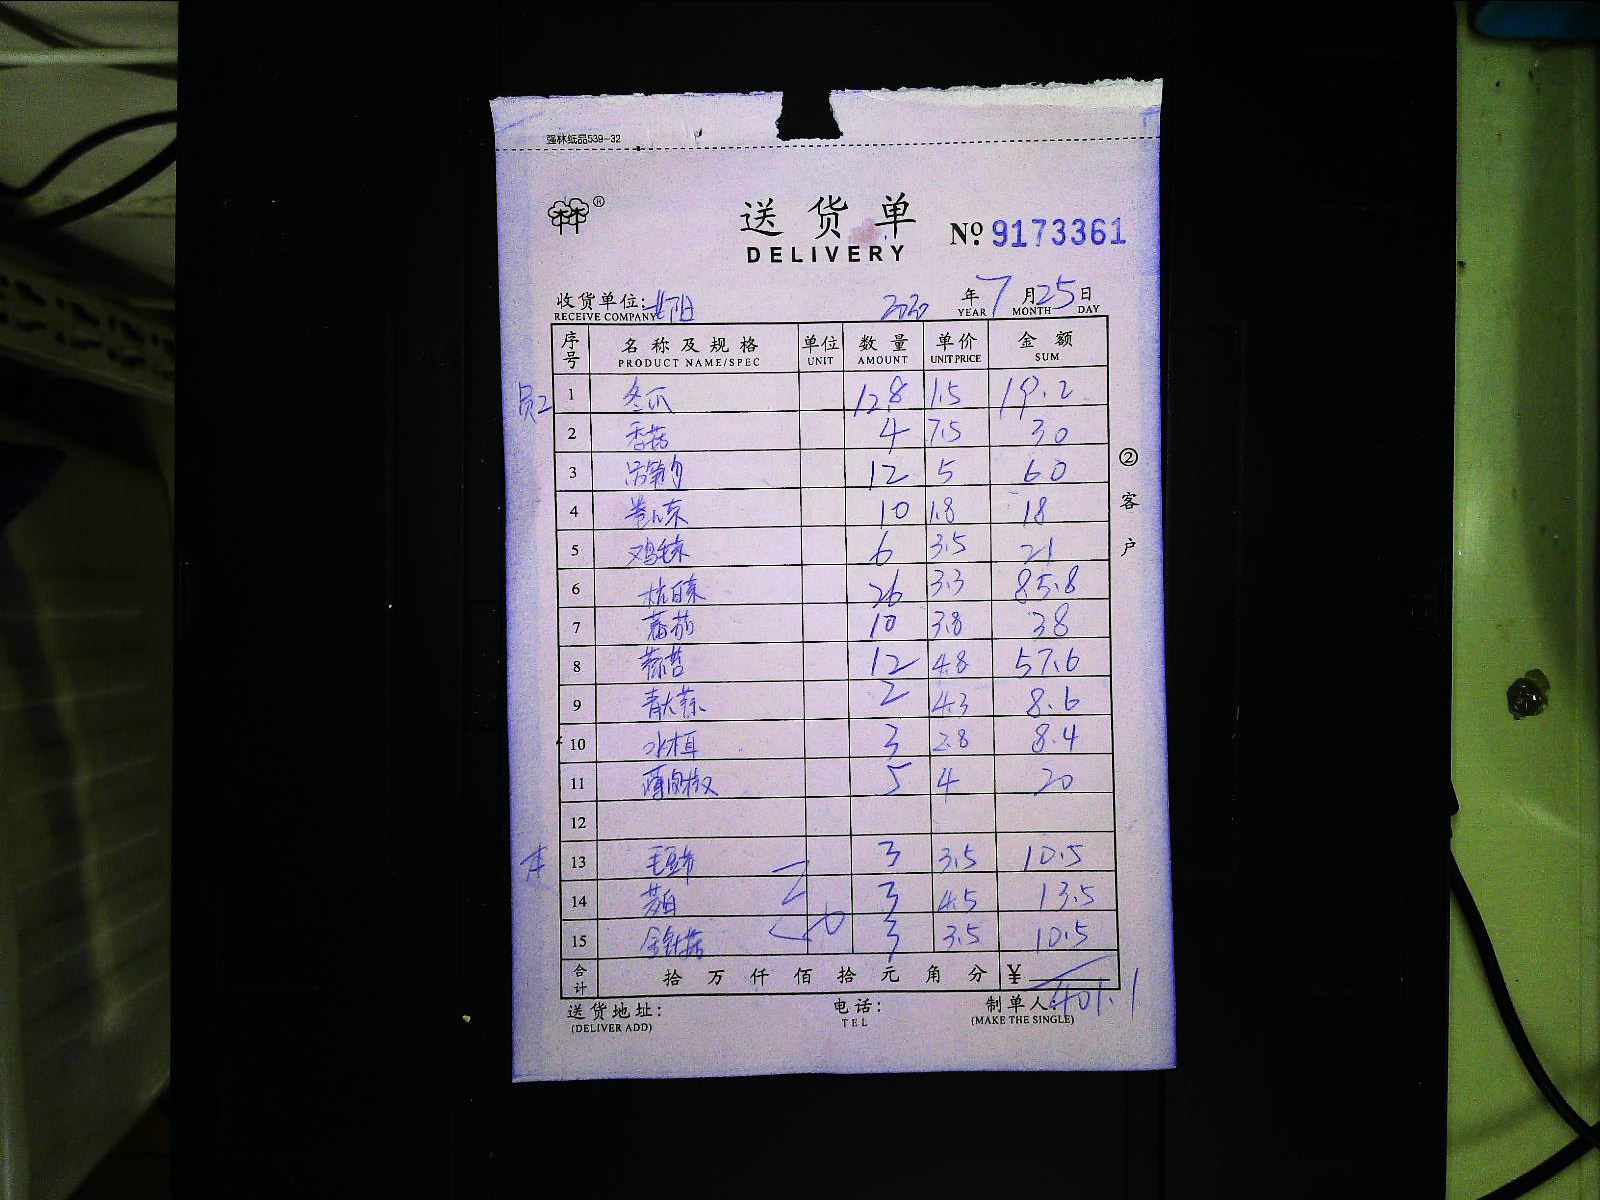 强林纸品539-32
林林®
送货单
DELIVERY
№ 9173361
收货单位: 2020 年 7 月 25 日
RECEIVE COMPANY YEAR MONTH DAY
序号 名称及规格 单位 数量 单价 金额
PRODUCT NAME/SPEC UNIT AMOUNT UNIT PRICE SUM
员工 1 冬瓜 12.8 1.5 19.2
2 香菇 4 7.5 30
3 12 5 60
4 卷心菜 10 1.8 18
5 鸡毛菜 6 3.5 21
6 杭白菜 26 3.3 85.8
7 蕃茄 10 3.8 38
8 蒜苔 12 4.8 57.6
9 青大蒜 2 4.3 8.6
10 水木耳 3 2.8 8.4
11 薄肉椒 5 4 20
12
13 毛豆 3 3.5 10.5
14 茭白 3 4.5 13.5
15 金针菇 3 3.5 10.5
合计 拾 万 仟 佰 拾 元 角 分 ¥ 401.1
送货地址: 电话: 制单人:
(DELIVER ADD) TEL (MAKE THE SINGLE)
②客户